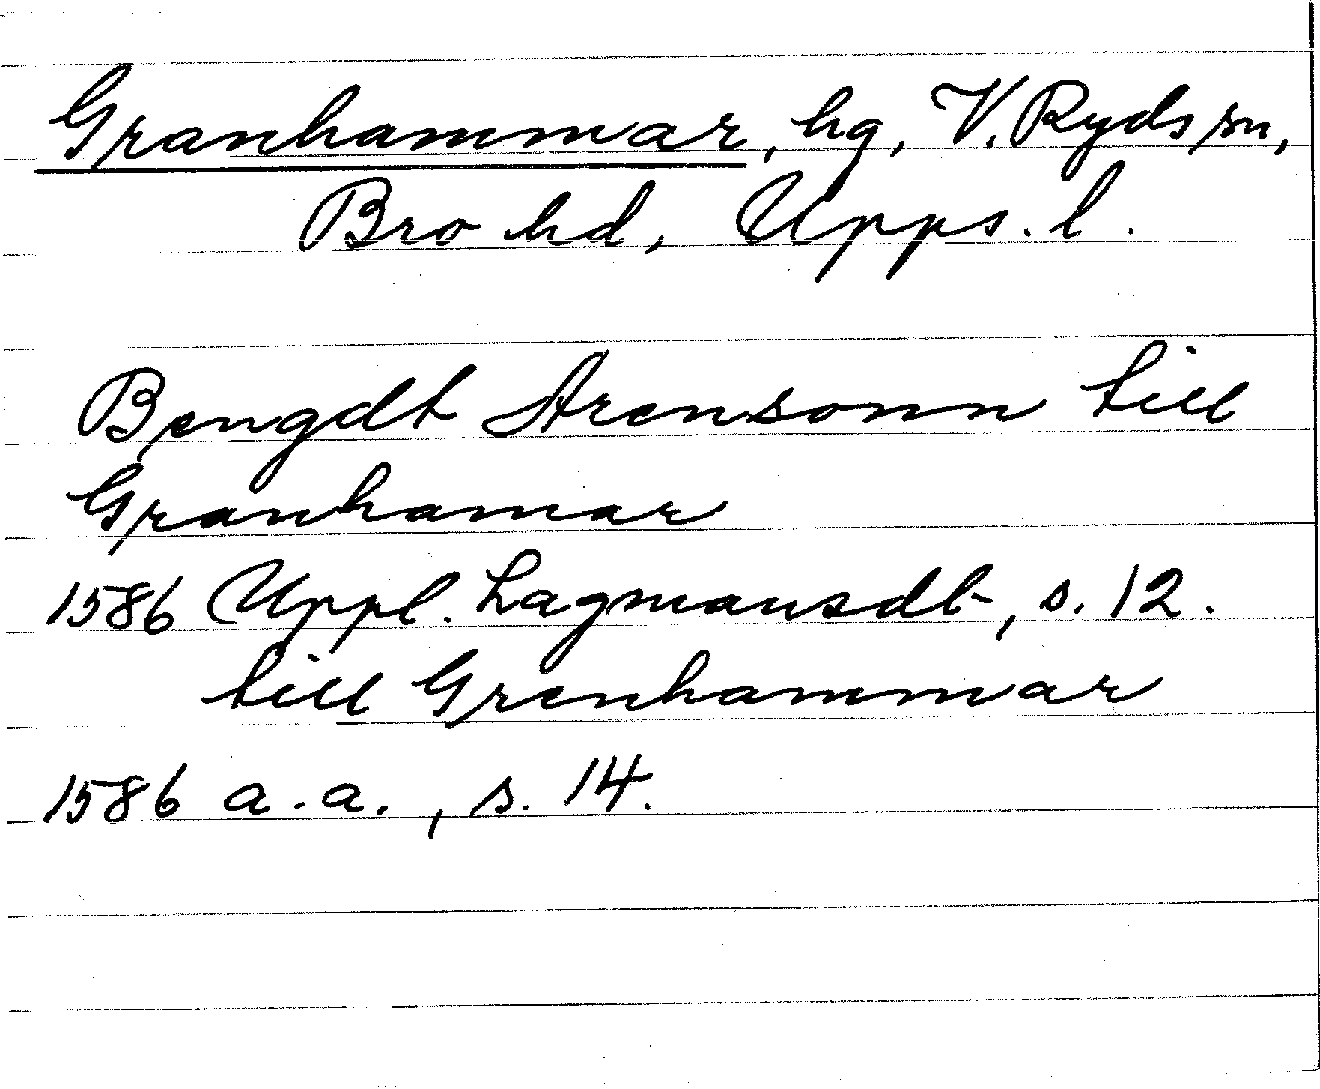 Granhammar, hg, V. Ryds sn,
Bro hd, Upps. l.
Bengdt Arensonn till
Granhamar
1586 Uppl. Lagmansdb, s. 12.
till Grenhammar
1586 a.a., s. 14.